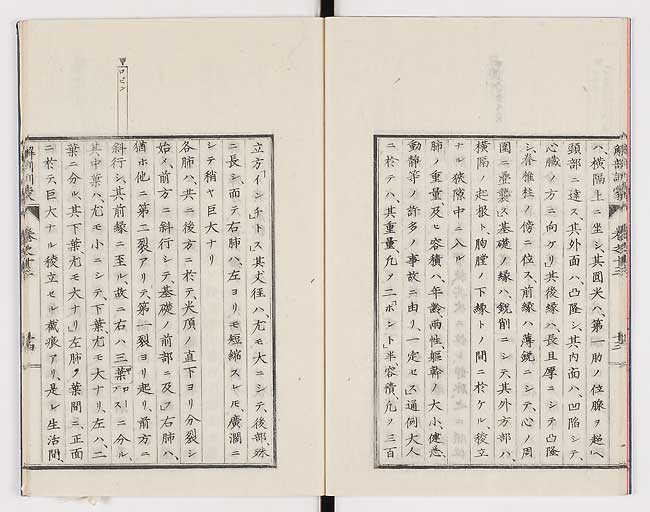 ハ、橫隔上ニ坐シ、其圓尖ハ、第一肋ノ位線ヲ超ヘ
頸部ニ達ス、其外面ハ、凸隆シ、其内面ハ、凹陷シテ、
心臓ノ方ニ向ケリ其後緣ハ、長且厚ニシテ凸隆
シ、脊椎柱ノ傍ニ位ス、前緣ハ、薄銳ニシテ、心ノ周
圍ニ ス基礎ノ緣ハ、銳削ニシテ、其外方部ハ、
橫隔ノ起根ト、胸膛ノ下緣トノ間ニ於ケル、稜立
ナル狹隙中ニ入ル
肺ノ重量及ヒ容積ハ、年齡、兩性、軀幹ノ大小、健恙、
動靜等ノ許多ノ事故ニ由リ、一定セス通例大人
ニ於テハ、其重量、凡ソ二「ポント」半容積、凡ソ三百
立方「インチ」トス其丈徑ハ、尤モ大ニシテ、後部、殊
ニ長シ、而テ右肺ハ、左ヨリモ短縮スレ𪜈、廣濶ニ
シテ稍ヤ巨大ナリ
各肺ハ、共ニ後方ニ於テ、尖頂ノ直下ヨリ分裂シ
始メ、前方ニ斜行シテ、基礎ノ前部ニ及フ右肺ハ、
猶ホ他ニ第二裂アリテ、第一裂ヨリ起リ、前方ニ
斜行シ、其前緣ニ至ル、故ニ右ハ三葉ニ分ル、
其中葉ハ、尤モ小ニシテ、下葉尤モ大ナリ、左ハ、二
葉ニ分ル、其下葉尤モ大ナリ左肺ノ葉間ニ、正面
ニ於テ巨大ナル稜立セル截痕アリ、是レ生活間、
ロビン
解剖訓蒙
卷之十三